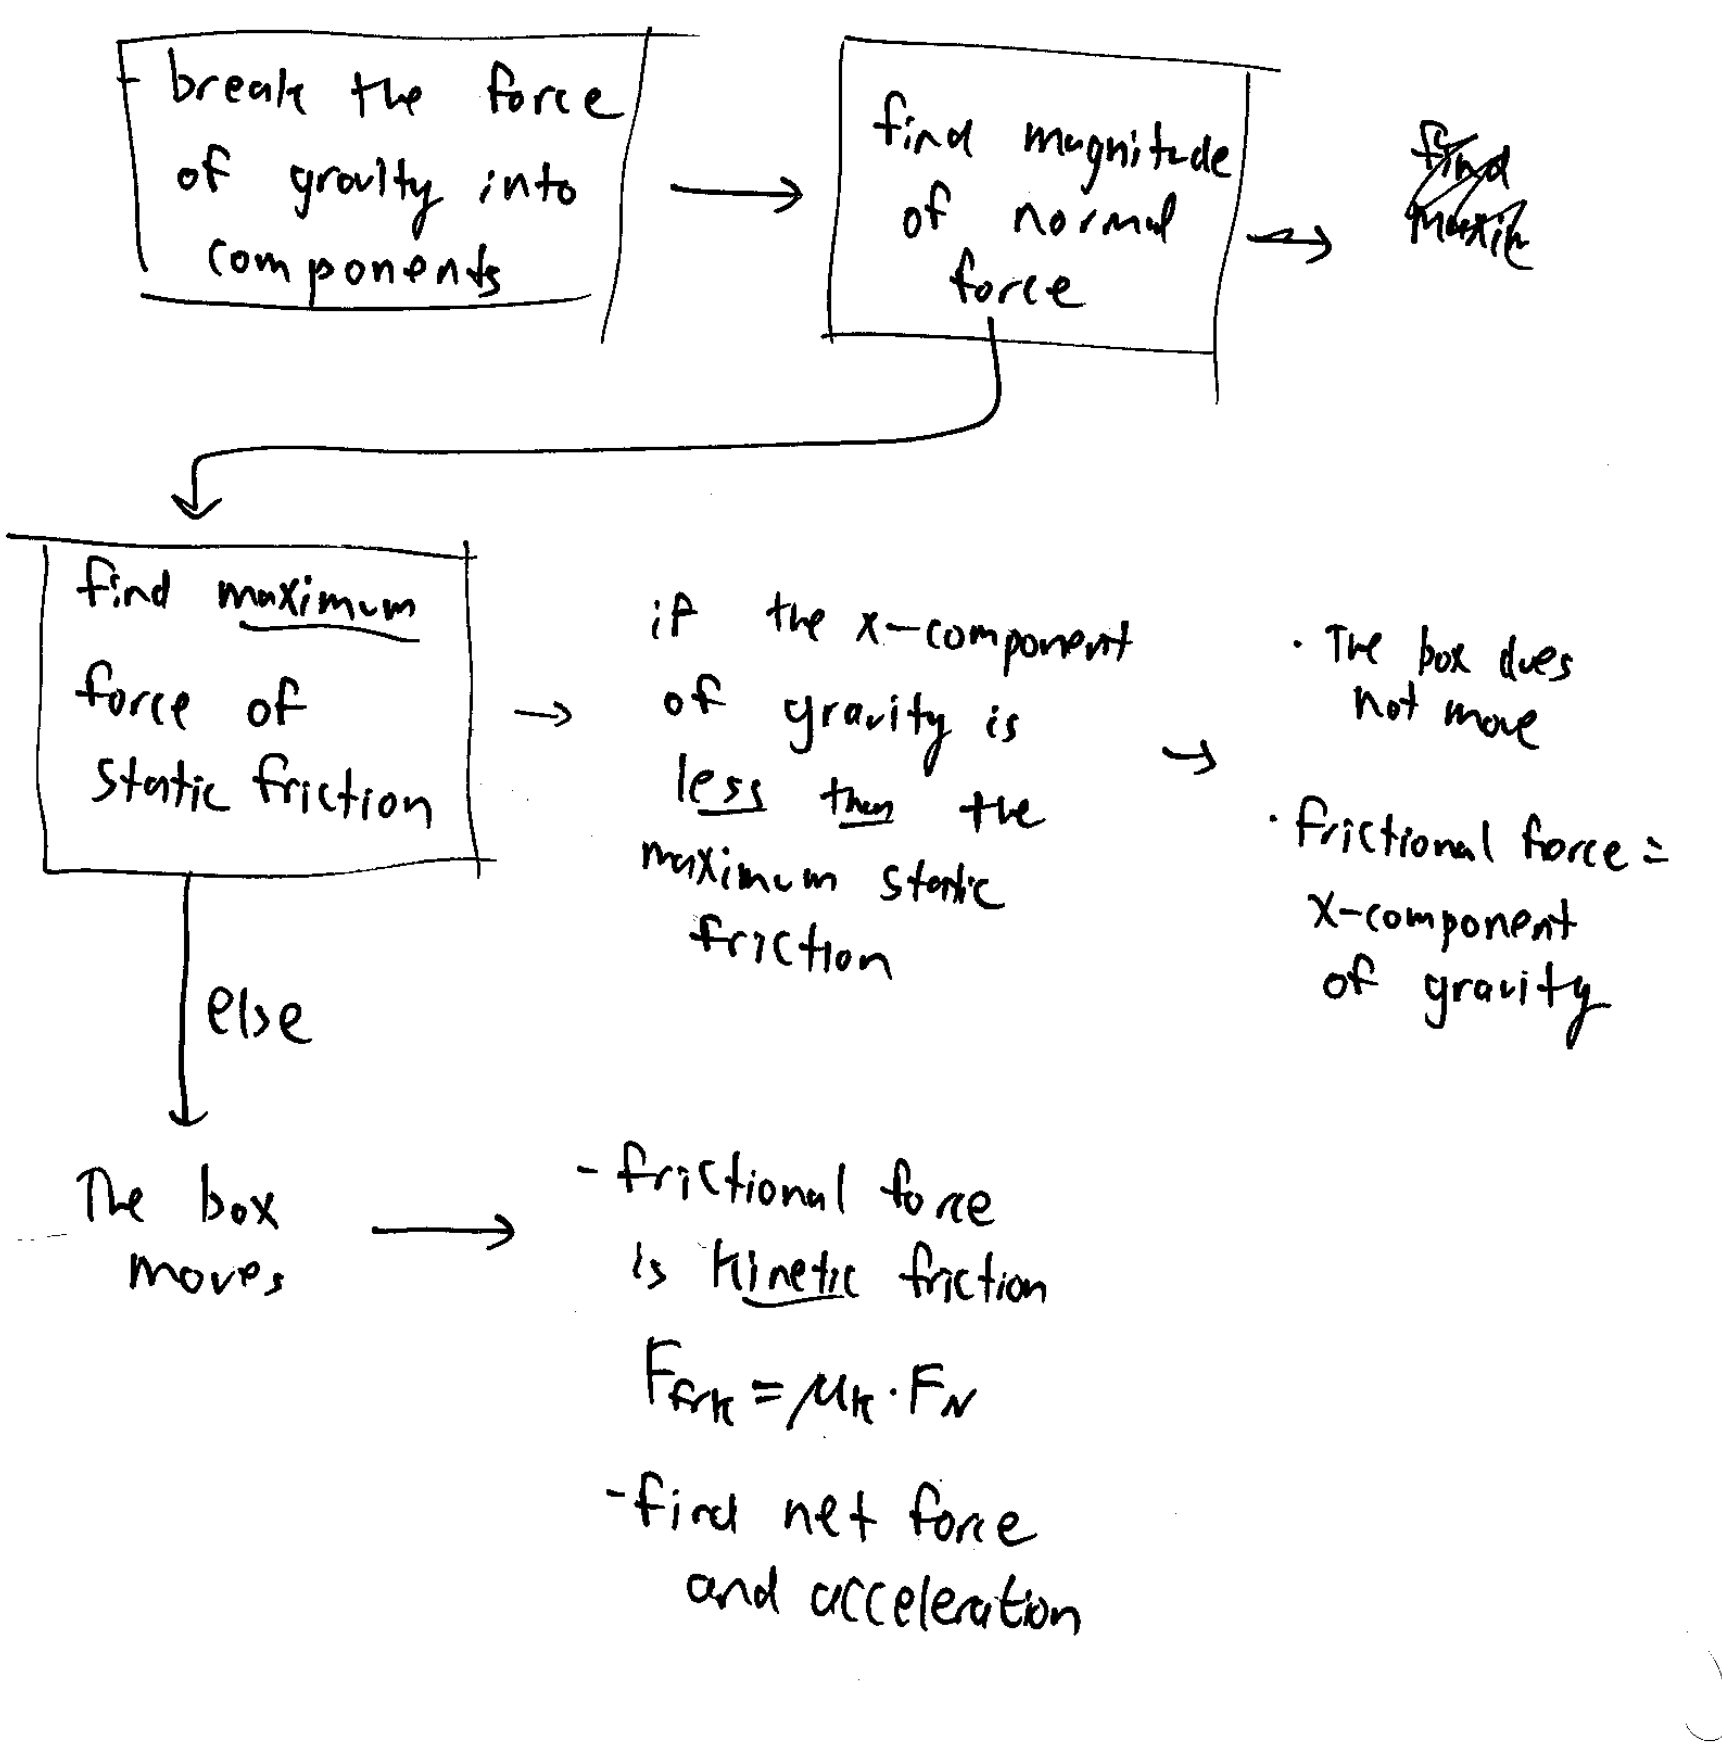 - break the force
of gravity into
components
find magnitude
of normal
force
find
maxim
find maximum
force of
static friction
if the x-component
of gravity is
less then the
maximum static
friction
· The box does
not move
· frictional force =
x-component
of gravity
else
The box
moves
- frictional force
is kinetic friction
Ffrk = μk · FN
- find net force
and acceleration